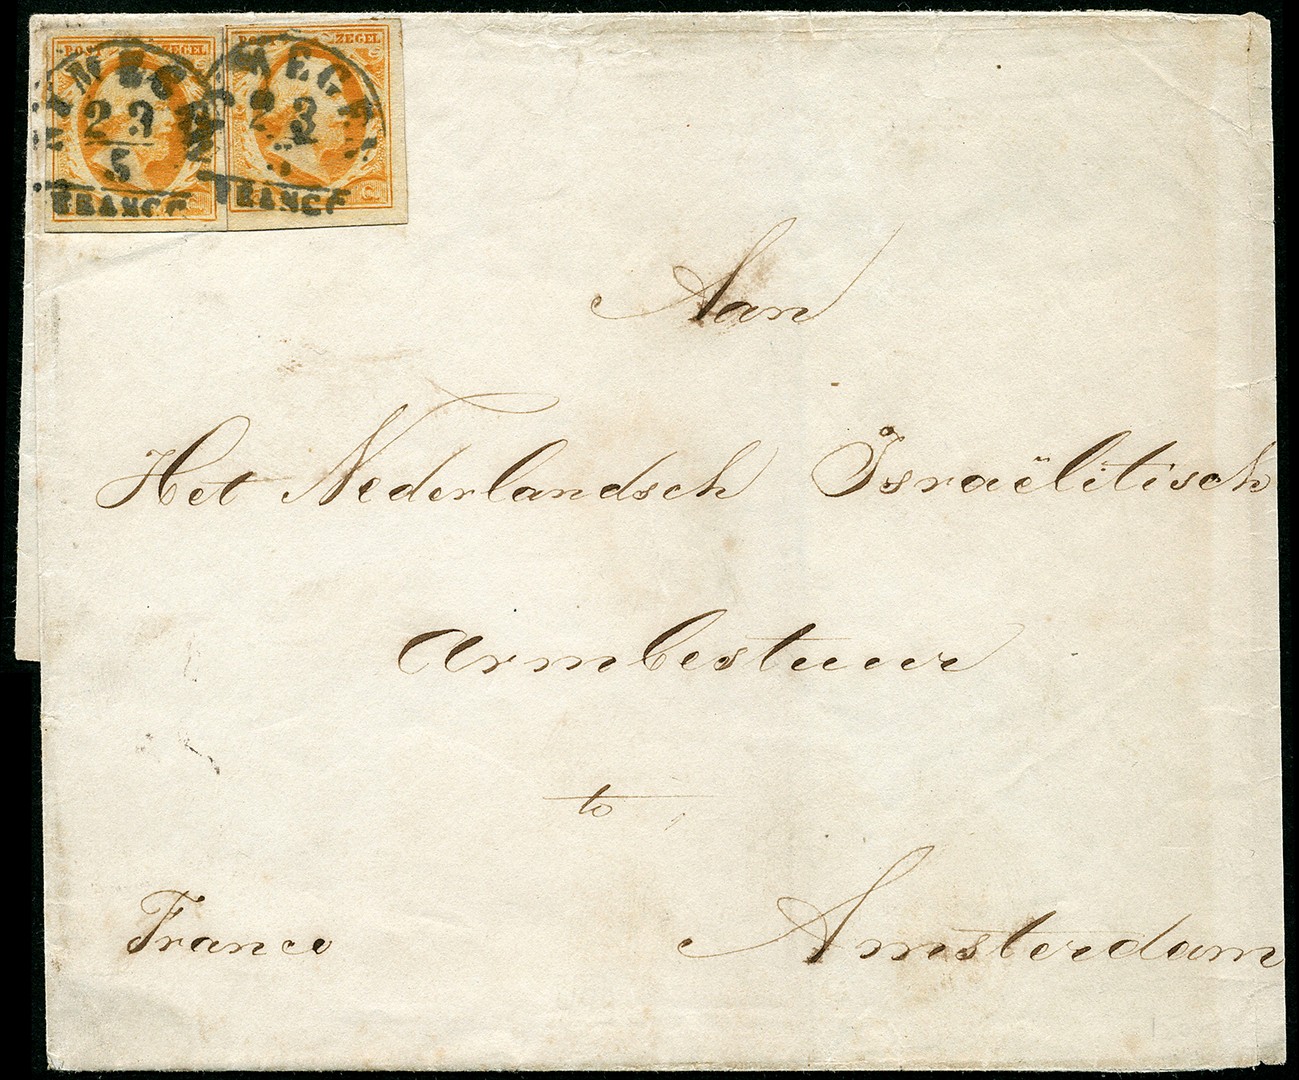 POST ZEGEL POST ZEGEL
NYMEGEN NYMEGEN
23 23
5 5
FRANCO FRANCO
Aan
Het Nederlandsch Israëlitisch
Armbestuur
te
Franco Amsterdam